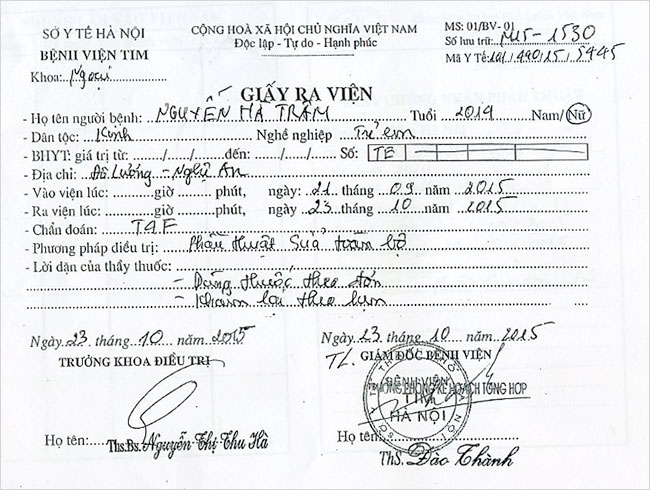 SỞ Y TẾ HÀ NỘI
BỆNH VIỆN TIM
Khoa: Ngoại
CỘNG HOÀ XÃ HỘI CHỦ NGHĨA VIỆT NAM
Độc lập - Tự do - Hạnh phúc
MS: 01/BV- 01
Số lưu trữ: M15-1530
Mã Y Tế: 101/440/15/5445
GIẤY RA VIỆN
- Họ tên người bệnh: NGUYỄN HÀ TRÂM Tuổi 2014 Nam/ Nữ
- Dân tộc: Kinh Nghề nghiệp Trẻ em
- BHYT: giá trị từ: ....../....../...... đến: ....../....../...... Số: TE
- Địa chỉ: Đô Lương - Nghệ An
- Vào viện lúc:............giờ............phút, ngày: 21 tháng 09 năm 2015
- Ra viện lúc:............giờ............phút, ngày: 23 tháng 10 năm 2015
- Chẩn đoán: T4F
- Phương pháp điều trị: Phẫu thuật sửa toàn bộ
- Lời dặn của thầy thuốc:
- Dùng thuốc theo đơn
- Khám lại theo hẹn
Ngày 23 tháng 10 năm 2015
TRƯỞNG KHOA ĐIỀU TRỊ
Họ tên:
Ths.Bs. Nguyễn Thị Thu Hà
Ngày 23 tháng 10 năm 2015
TL. GIÁM ĐỐC BỆNH VIỆN
TRƯỞNG PHÒNG KẾ HOẠCH TỔNG HỢP
BỆNH VIỆN
TIM
HÀ NỘI
Họ tên:
ThS. Đào Thành